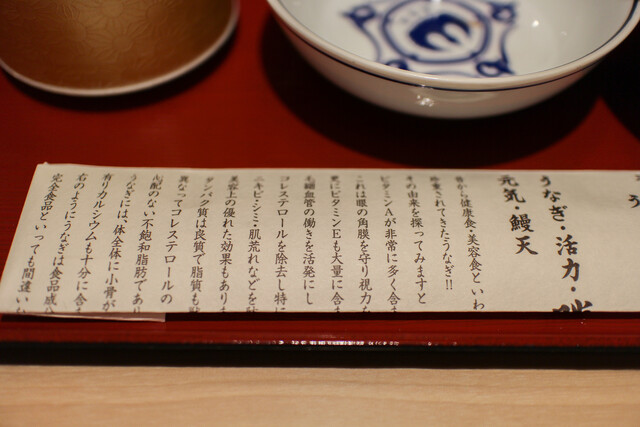 うなぎ・活力・
元気・鰻天
昔から健康食・美容食といわ
珍重されてきたうなぎ!!
その由来を探ってみますと
ビタミンAが非常に多く含ま
これは眼の角膜を守り視力を
更にビタミンEも大量に含ま
毛細血管の働きを活発にし
コレステロールを除去し特に
ニキビ・シミ・肌荒れなどを
美容上の優れた効果もありま
タンパク質は良質で脂質も
異なってコレステロールの
心配のない不飽和脂肪であり
うなぎには、体全体に小骨が
有りカルシウムも十分に含ま
右のようにうなぎは食品成分
完全食品といっても間違いな